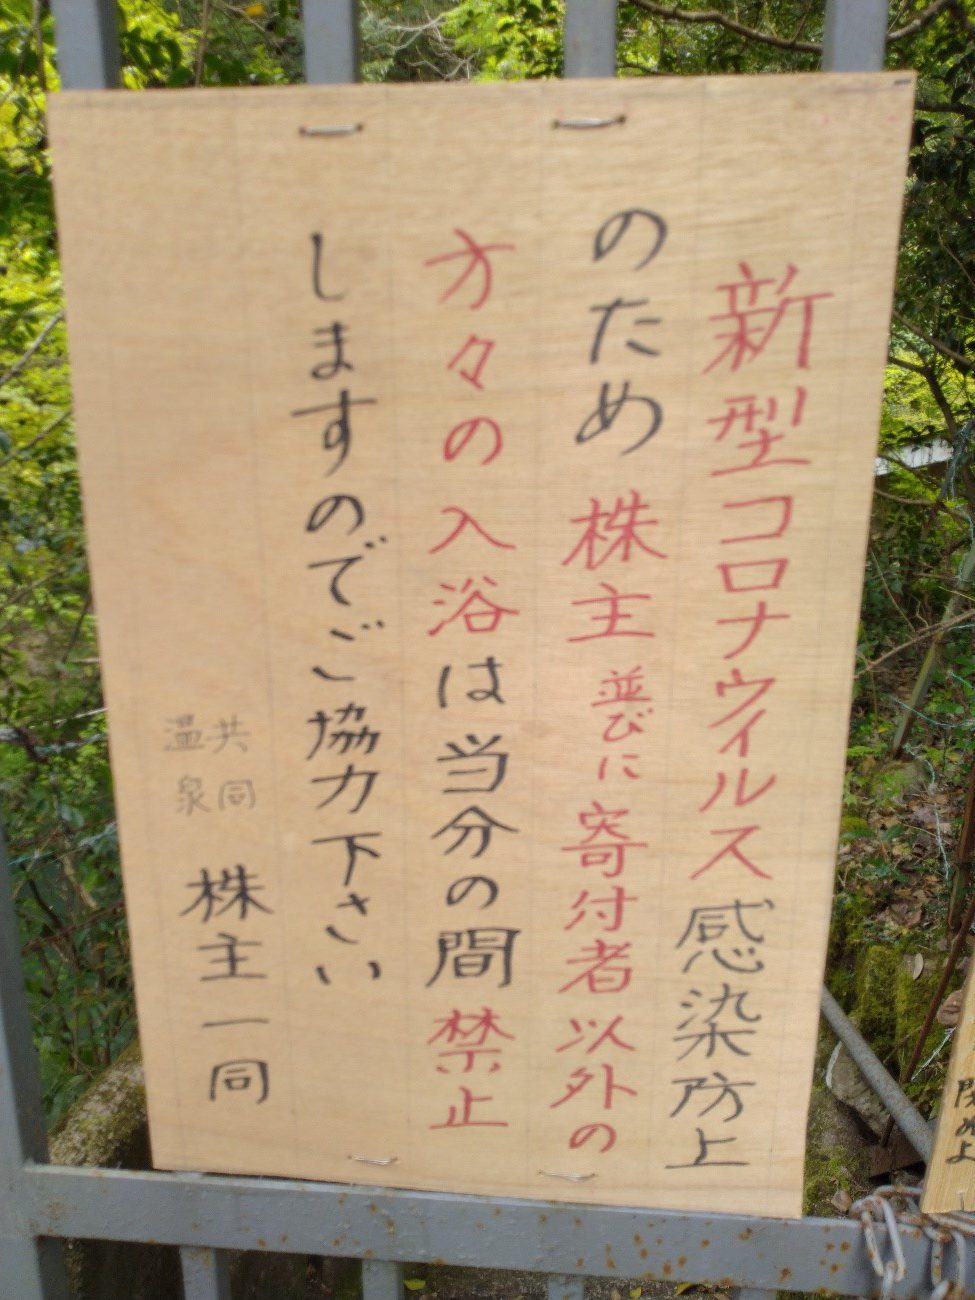 新型コロナウイルス感染防止
のため株主並びに寄付者以外の
方々の入浴は当分の間禁止
しますのでご協力下さい
共同
温泉
株主一同